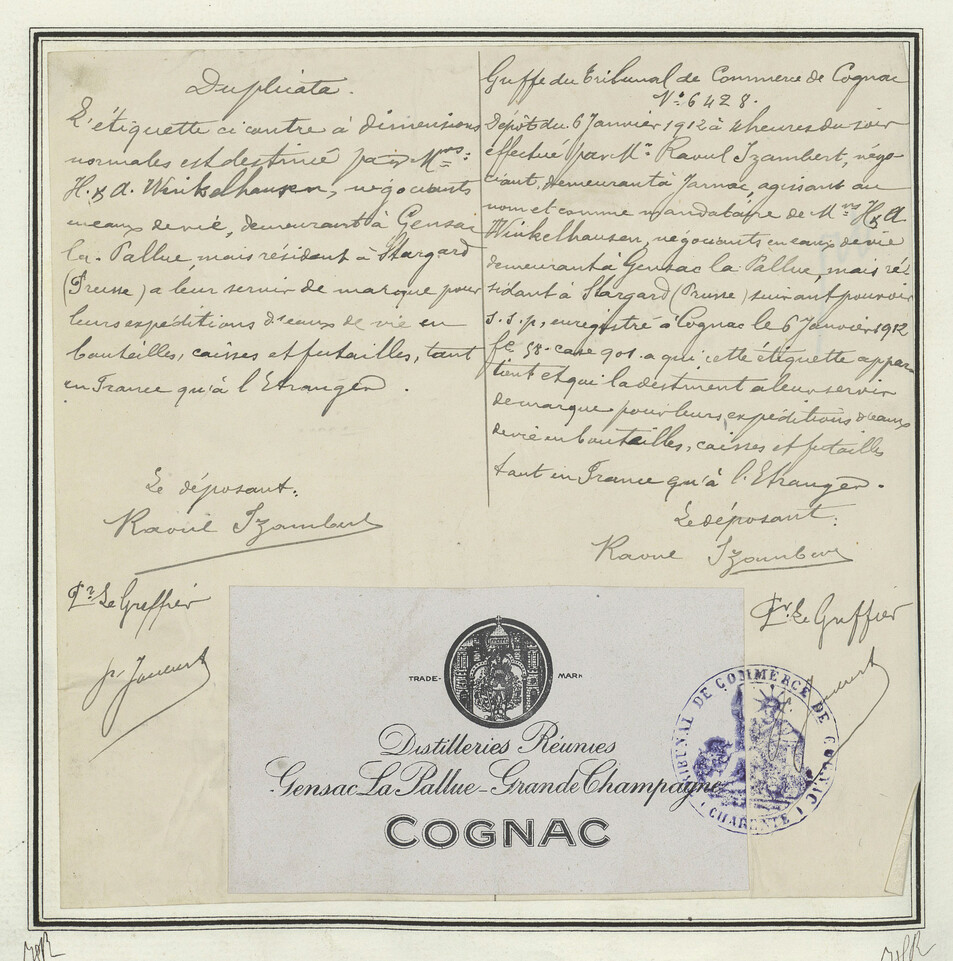 Duplicata.
L'étiquette ci contre à dimensions
normales est destinée par Mrs:
H. & A. Winkelhausen, négociants
en eaux de vie, demeurant à Gensac
la-Pallue, mais résidant à Stargard
(Prusse) a leur servir de marque pour
leurs expéditions d'eaux de vie en
bouteilles, caisses et futailles, tant
en France qu'à l'Etranger.
Le déposant:
Raoul Izambert
Pr Le Greffier
Greffe du Tribunal de Commerce de Cognac
No 6428.
Dépôt du 6 Janvier 1912 à 4 heures du soir
effectué par Mr Raoul Izambert, négo-
ciant, demeurant à Jarnac, agissant au
nom et comme mandataire de Mrs H & A
Winkelhausen, négociants en eaux de vie
demeurant à Gensac la Pallue, mais ré-
sidant à Stargard (Prusse) suivant pouvoir
s.s.p, enregistré à Cognac le 6 Janvier 1912
fe 58 case 901. a qui cette étiquette appar-
tient et qui la destinent a leur servir
de marque pour leurs expéditions d'eaux
de vie en bouteilles, caisses et futailles
tant en France qu'à l'Etranger.
Le déposant:
Raoul Izambert
Pr. Le Greffier
TRADE- MARK
Distilleries Réunies
Gensac La Pallue - Grande Champagne
COGNAC
TRIBUNAL DE COMMERCE DE COGNAC
(CHARENTE)